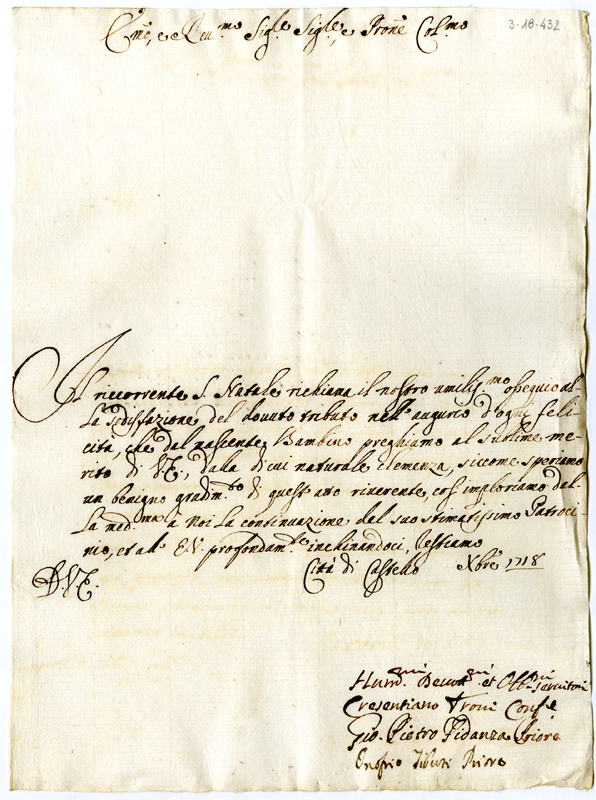 3-18-432
Em.o, e Reu.mo Sig.e Sig.e, e Prone Col.mo
Il ricorrente S. Natale richiama il nostro umilis.mo ossequio al
la sodisfazione del douuto tributo nell' augurio d'ogni feli-
cità, che dal nascente Bambino preghiamo al sublime me-
rito di V.E., dalla di cui naturale clemenza, siccome speriamo
un benigno gradim.to di quest' atto riuerente, così imploriamo dal-
la med.ma à Noi la continuazione del suo stimatissimo Patroci-
nio, et all' E.V. profondam.te inchinandoci, restiamo
D.V.E.
Città di Castello Xbre 1718
Hum.mi Deuot.mi et Obb.mi Seruitori
Cresentiano Troni Conf.e
Gio. Pietro Fidanza Priore
Onofrio Priore